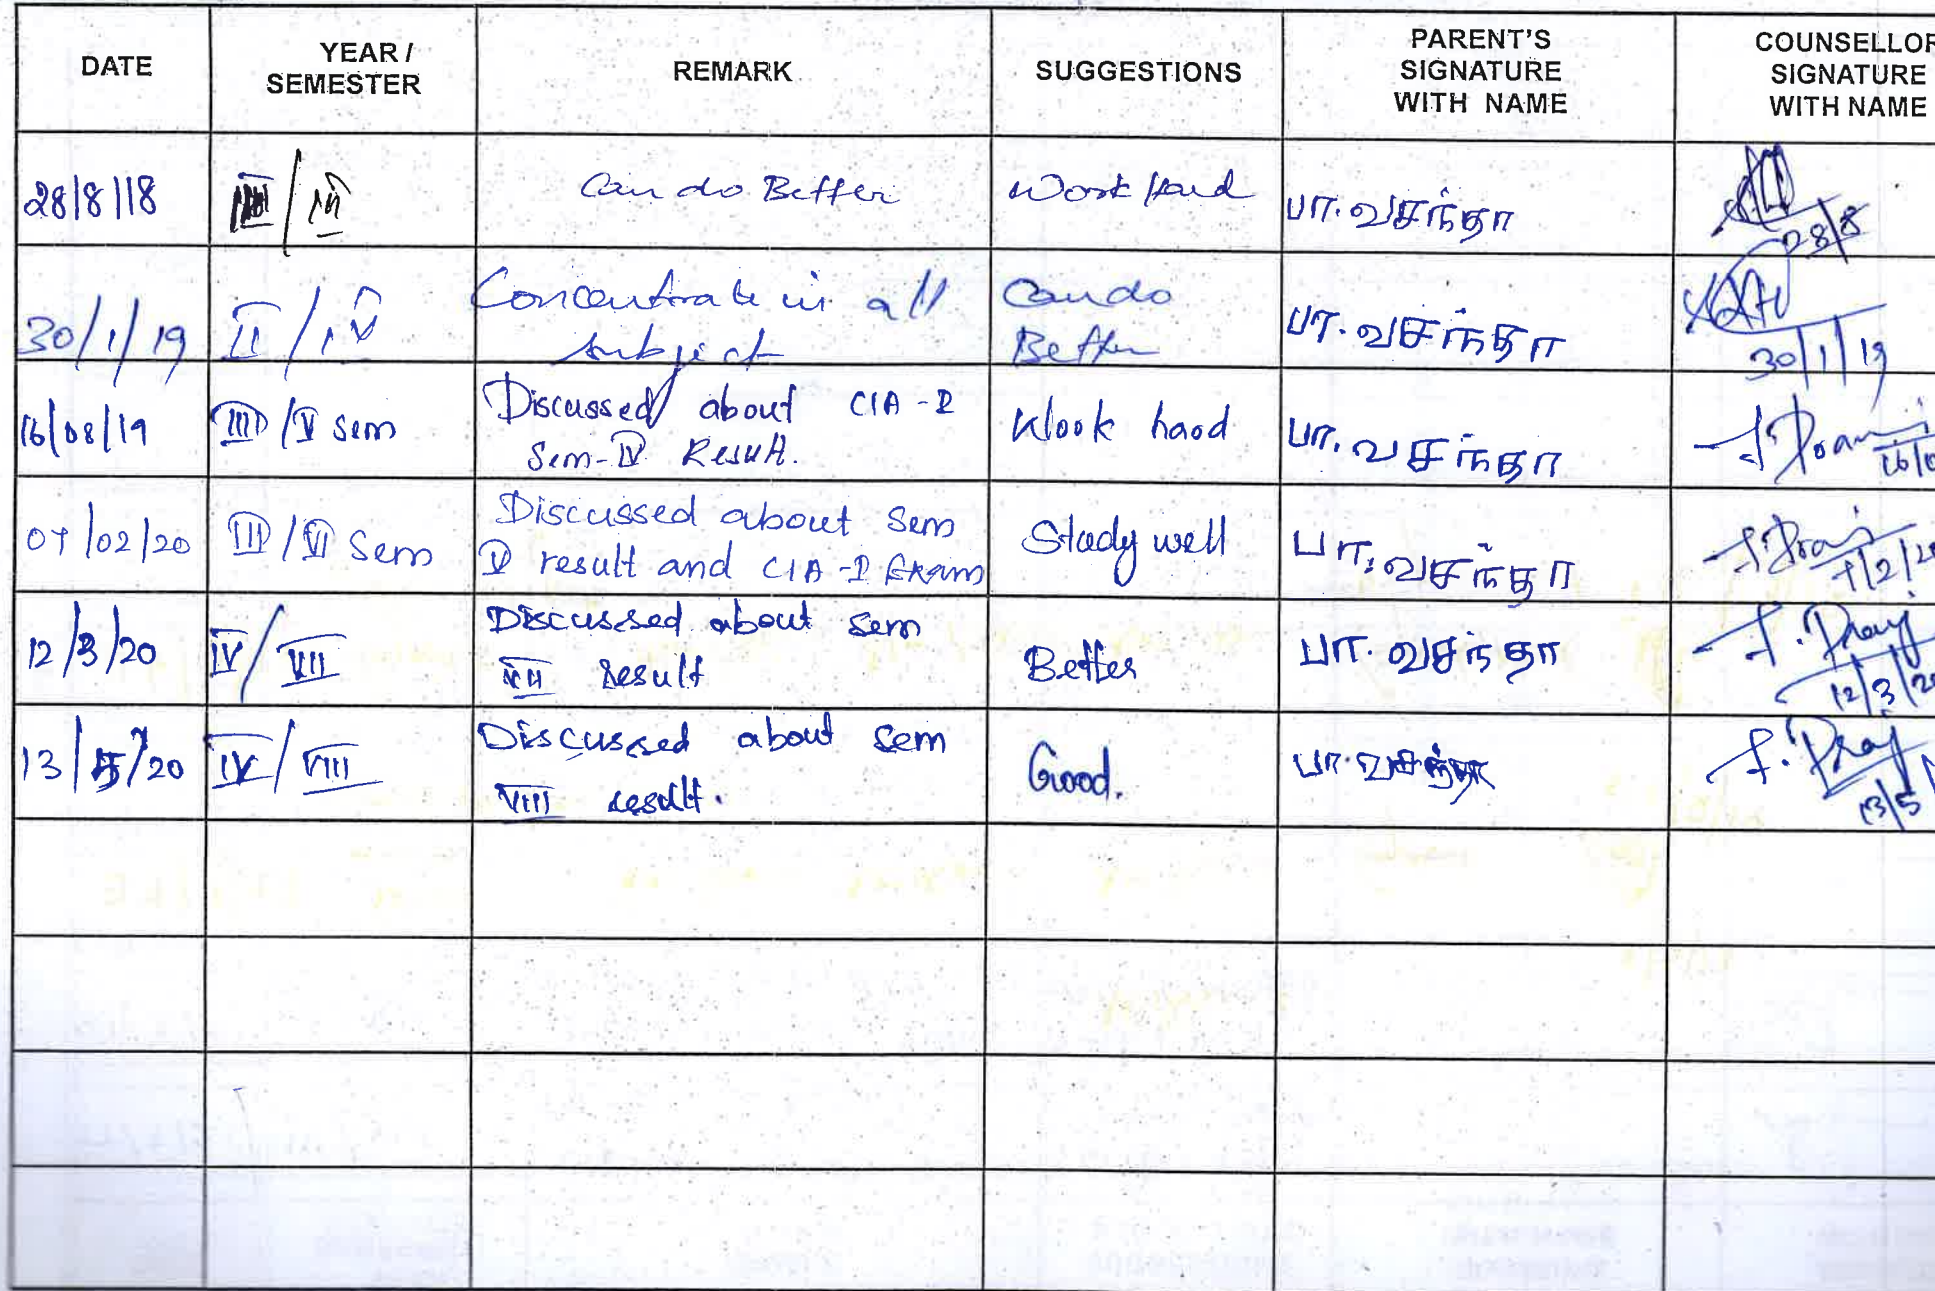 DATE
YEAR /
SEMESTER
REMARK
SUGGESTIONS
PARENT'S
SIGNATURE
WITH NAME
COUNSELLOR
SIGNATURE
WITH NAME
28/8/18
Can do Better
Work Hard
பா.வசந்தா
28/8
30/1/19
II / IV
Concentrate in all
subject
Can do
Better
பா.வசந்தா
30/1/19
16/08/19
III / V Sem
Discussed about CIA - I
Sem - IV Result.
Work hard
பா.வசந்தா
07/02/20
III / VI Sem
Discussed about Sem
V result and CIA - I Exam
Study well
பா.வசந்தா
7/2/20
12/3/20
IV / VII
Discussed about Sem
VII result
Better
பா.வசந்தா
12/3/20
13/5/20
IV / VIII
Discussed about Sem
VIII result.
Good.
பா.வசந்தா
13/5